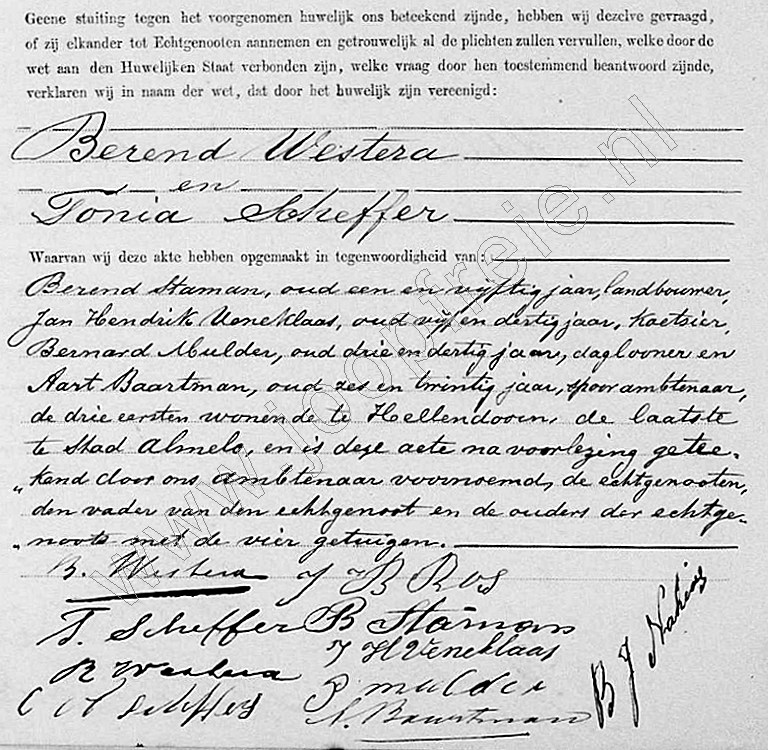 Geene stuiting tegen het voorgenomen huwelijk ons beteekend zijnde, hebben wij dezelve gevraagd,
of zij elkander tot Echtgenooten aannemen en getrouwelijk al de plichten zullen vervullen, welke door de
wet aan den Huwelijken Staat verbonden zijn, welke vraag door hen toestemmend beantwoord zijnde,
verklaren wij in naam der wet, dat door het huwelijk zijn vereenigd:
Berend Westera
en
Tonia Scheffer
Waarvan wij deze akte hebben opgemaakt in tegenwoordigheid van:
Berend Staman, oud een en vijftig jaar, landbouwer,
Jan Hendrik Veneklaas, oud vijf en dertig jaar, koetsier,
Bernard Mulder, oud drie en dertig jaar, daglooner en
Aart Baartman, oud zes en twintig jaar, spoorambtenaar,
de drie eersten wonende te Hellendoorn, de laatste
te Stad Almelo, en is deze acte na voorlezing getee-
„kend door ons ambtenaar voornoemd, de echtgenooten,
den vader van den echtgenoot en de ouders der echtge-
„noote met de vier getuigen.
B. Westera J B Ros
T. Scheffer B Staman
J H Veneklaas
R Westera
B mulder
Scheffer
A. Baartman
B J
www.joopfreie.nl